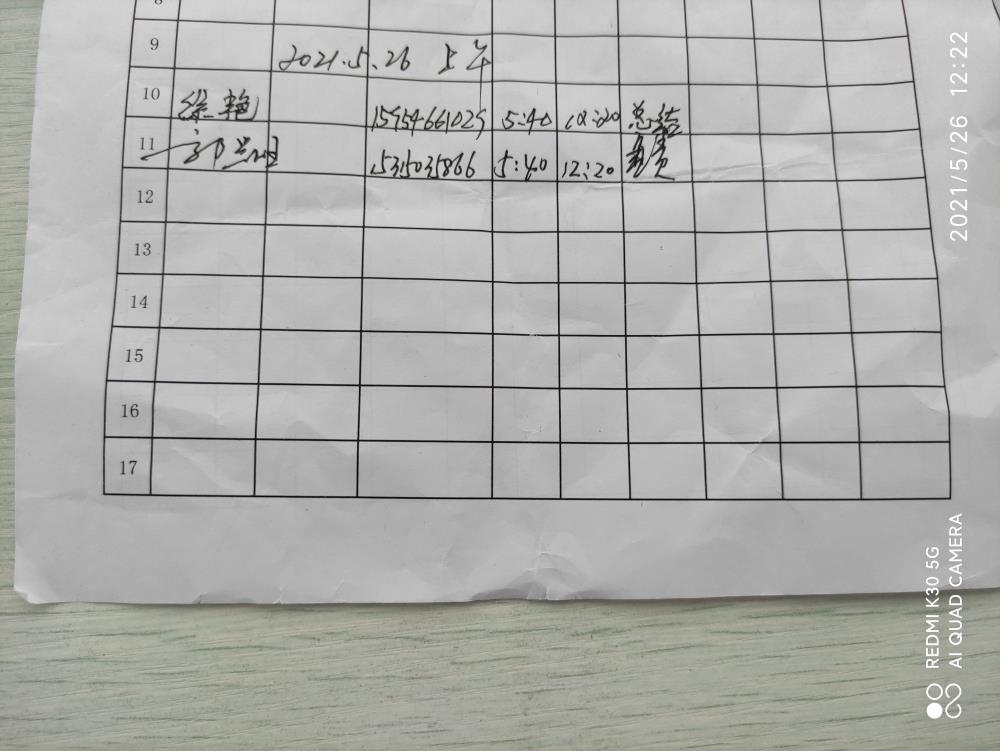 8
9 2021.5.26 上午
10 徐艳 15954661029 5:40 12:20 总结
11 5315035866 5:40 12:20
12
13
14
15
16
17
2021/5/26 12:22
REDMI K30 5G
AI QUAD CAMERA